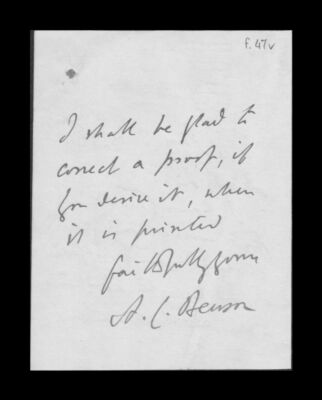 f. 47v
I shall be glad to
correct a proof, if
you desire it, when
it is printed
faithfully yours
A. C. Benson